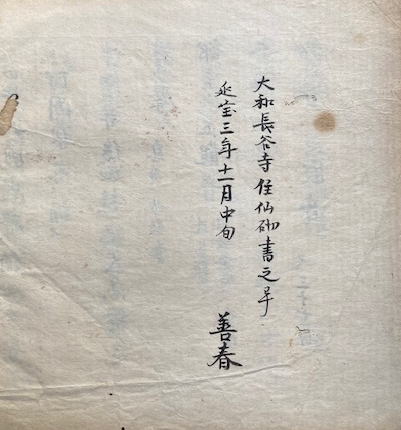 大和長谷寺住仙砌書之早
延宝三年十一月中旬
善春